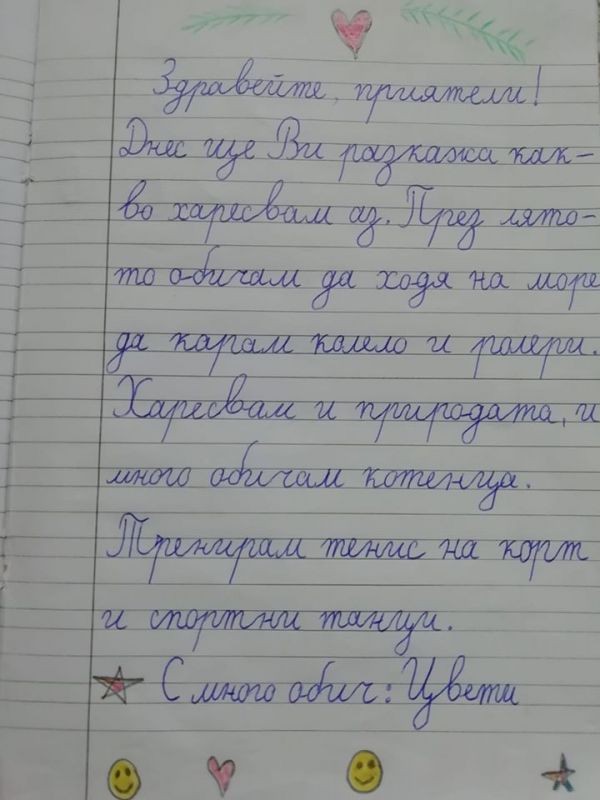 Здравейте, приятели!
Днес ще Ви разкажа как-
во харесвам аз. През лято-
то обичам да ходя на море
да карам колело и ролери.
Харесвам и природата, и
много обичам котенца.
Тренирам тенис на корт
и спортни танци.
С много обич: Цвети